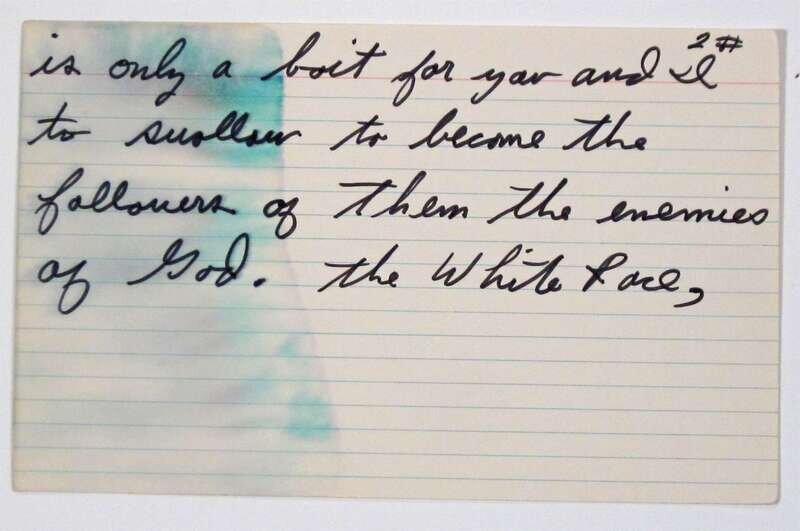 is only a bait for you and I 2#
to swallow to become the
followers of them the enemies
of God. the White Race,